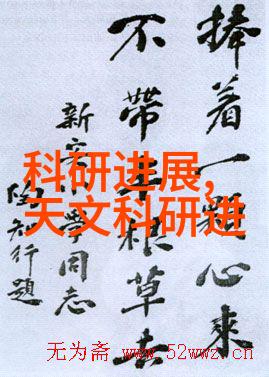 捧着一颗心来
不带半根草去
新安小学同志
陶知行题
科研进展,
天文科研进
无为斋 www.52wwz.cn